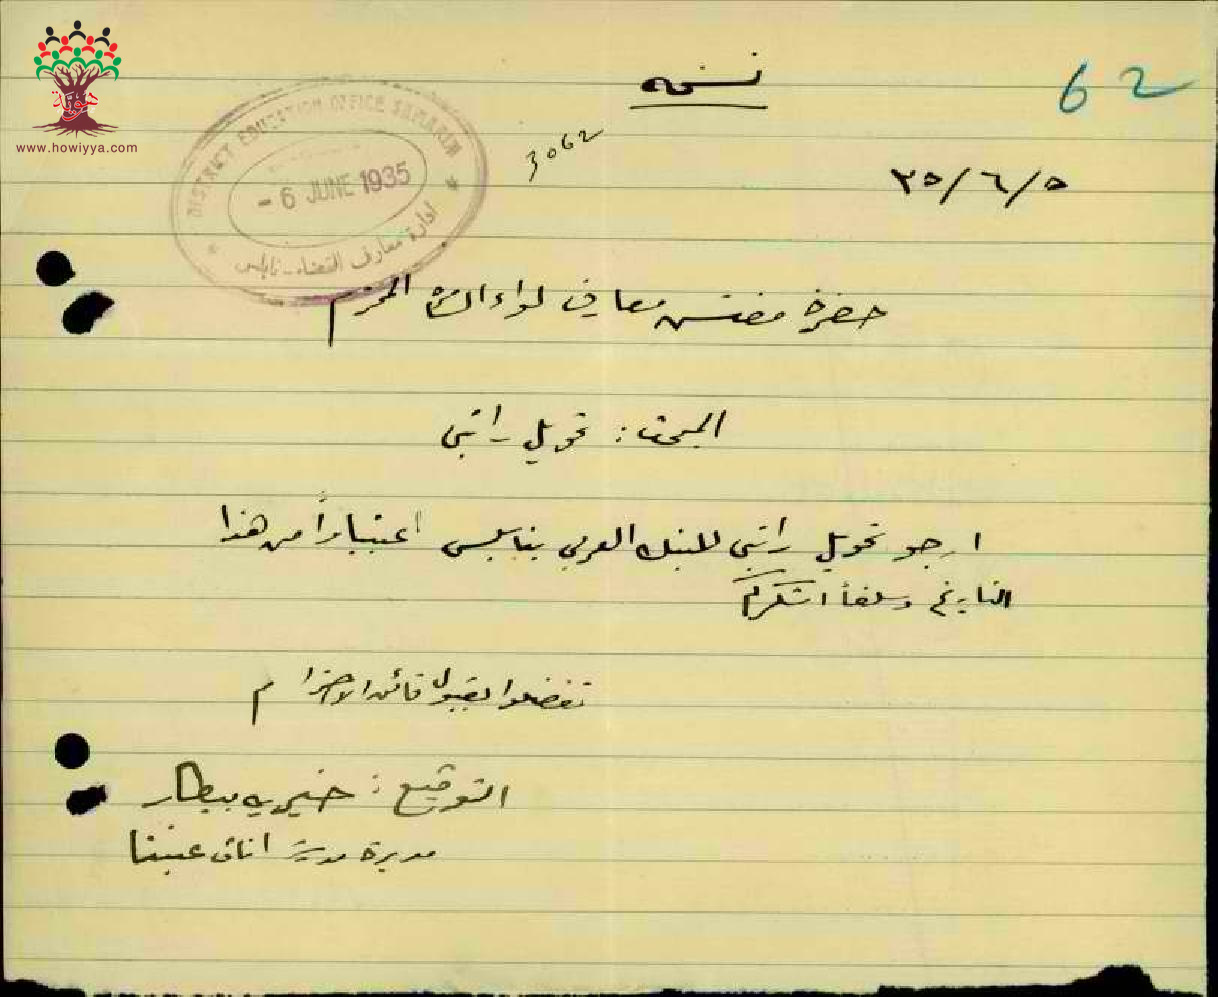 نسخه
62
3062
٣٥/٦/٥
DISTRICT EDUCATION OFFICE SAMARIA
- 6 JUNE 1935
ادارة معارف القضاء - نابلس
هوية
www.howiyya.com
حضرة مفتش معارف لواء المحترم
المبحث: تحويل راتبي
ارجو تحويل راتبي للبنك العربي بنابلس اعتباراً من هذا
التاريخ وسلفاً اشكركم
تفضلوا بقبول فائق الاحترام
التوقيع: خيريه بيطار
مديرة مدرسة اناث عنبتا